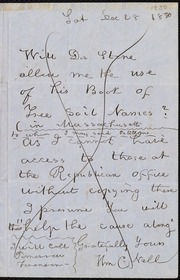 Sat Dec 28 1850
Will Dr. Stone
allow me the use
of his Book of
Free Soil Names?
(in Massachusetts
to whom I may send
As I cannot have
access to those at
the Republican office
without copying them
I presume you will
"help the cause along"
I will call Gratefully Yours
Tomorrow Wm C. Nell